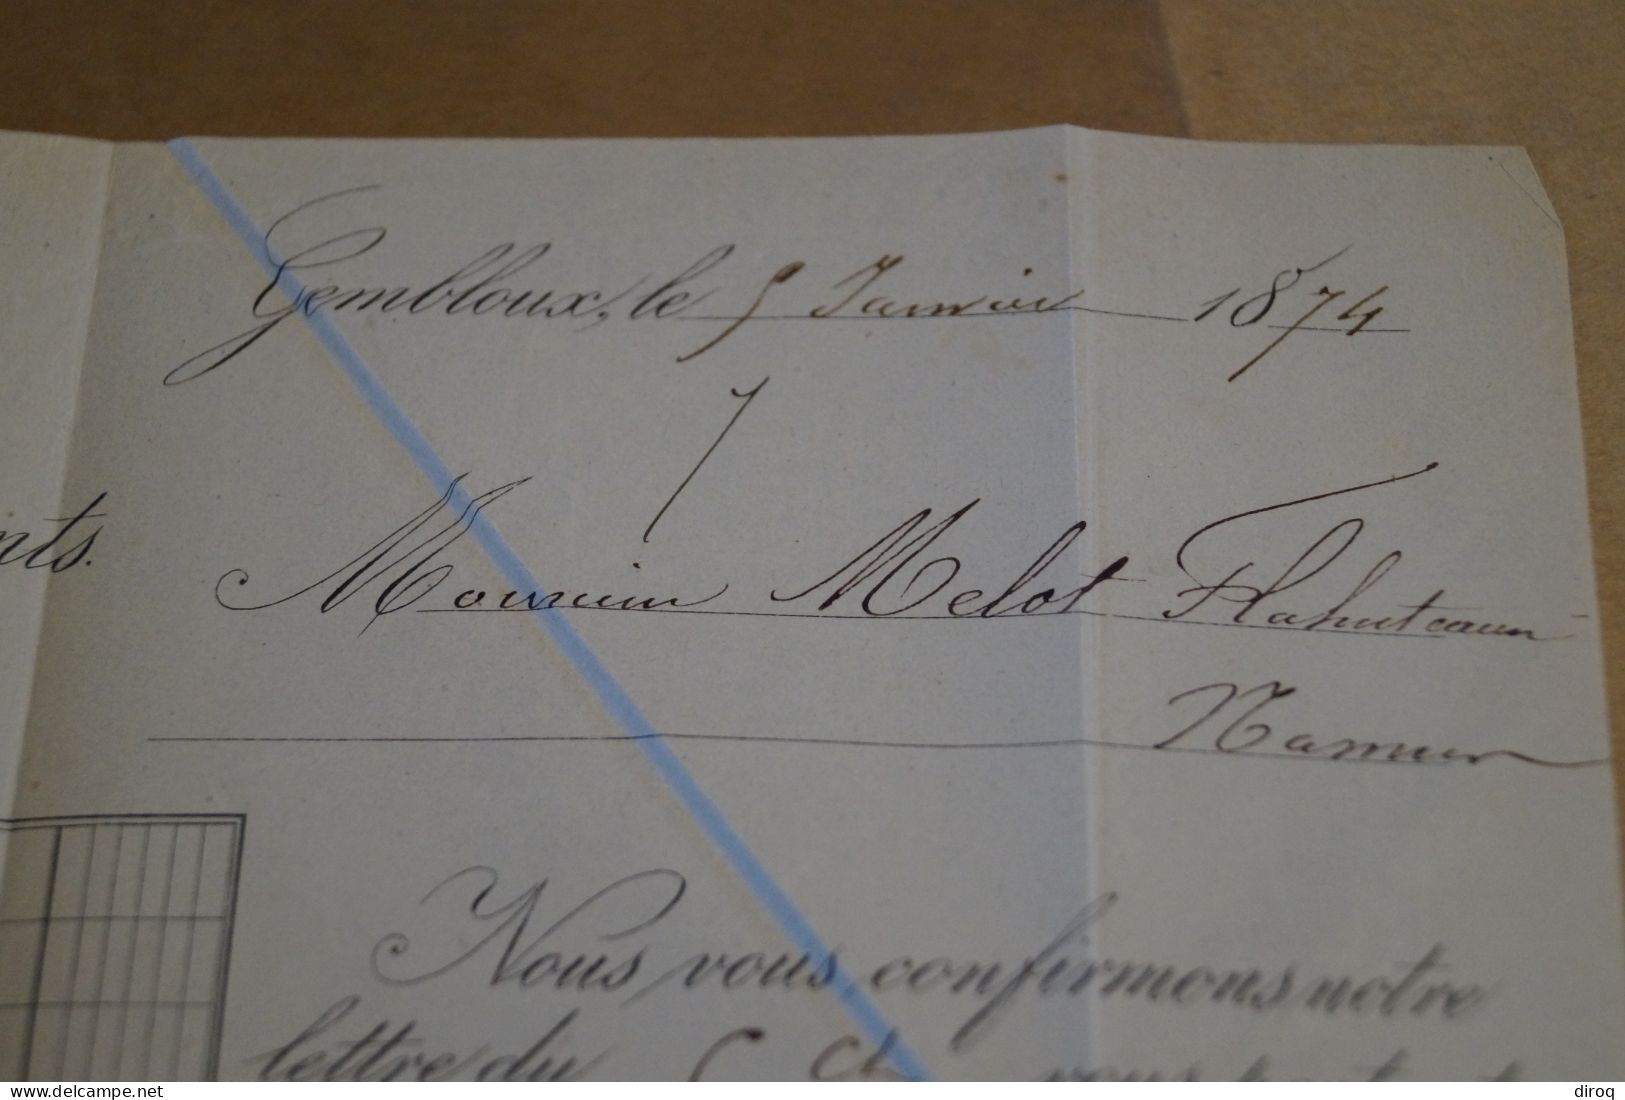 Gembloux, le 5 Janvier 1874
nts.
Monsieur Melot Flahuteaux
Namur
Nous vous confirmons notre
lettre du 5 Ct vous
delcampe.net
diroq